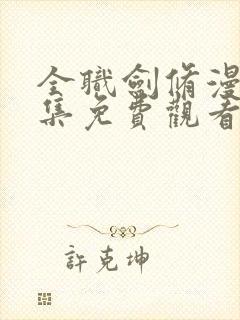 全職劍脩漫
集免費觀看
許克坤